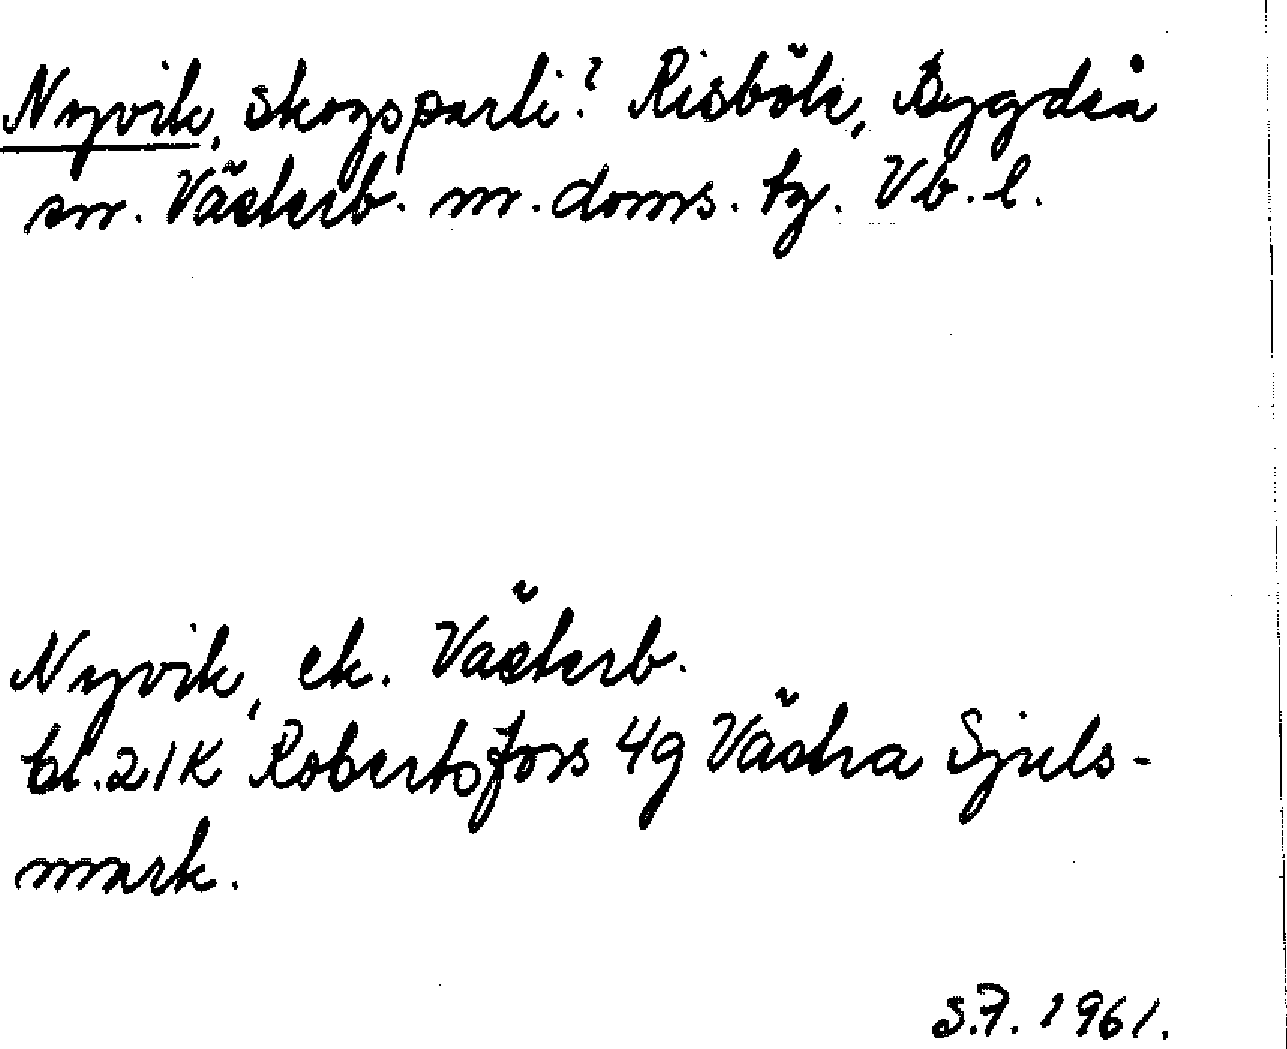 Nyvik, skogsparti? Risbök, Bygdeå
sn. Västerb. n. doms. tg. Vb. l.
Nyvik, ek. Västerb.
bl. 21K Robertsfors 4g Västra Sjuls-
mark.
S.F. 1961.